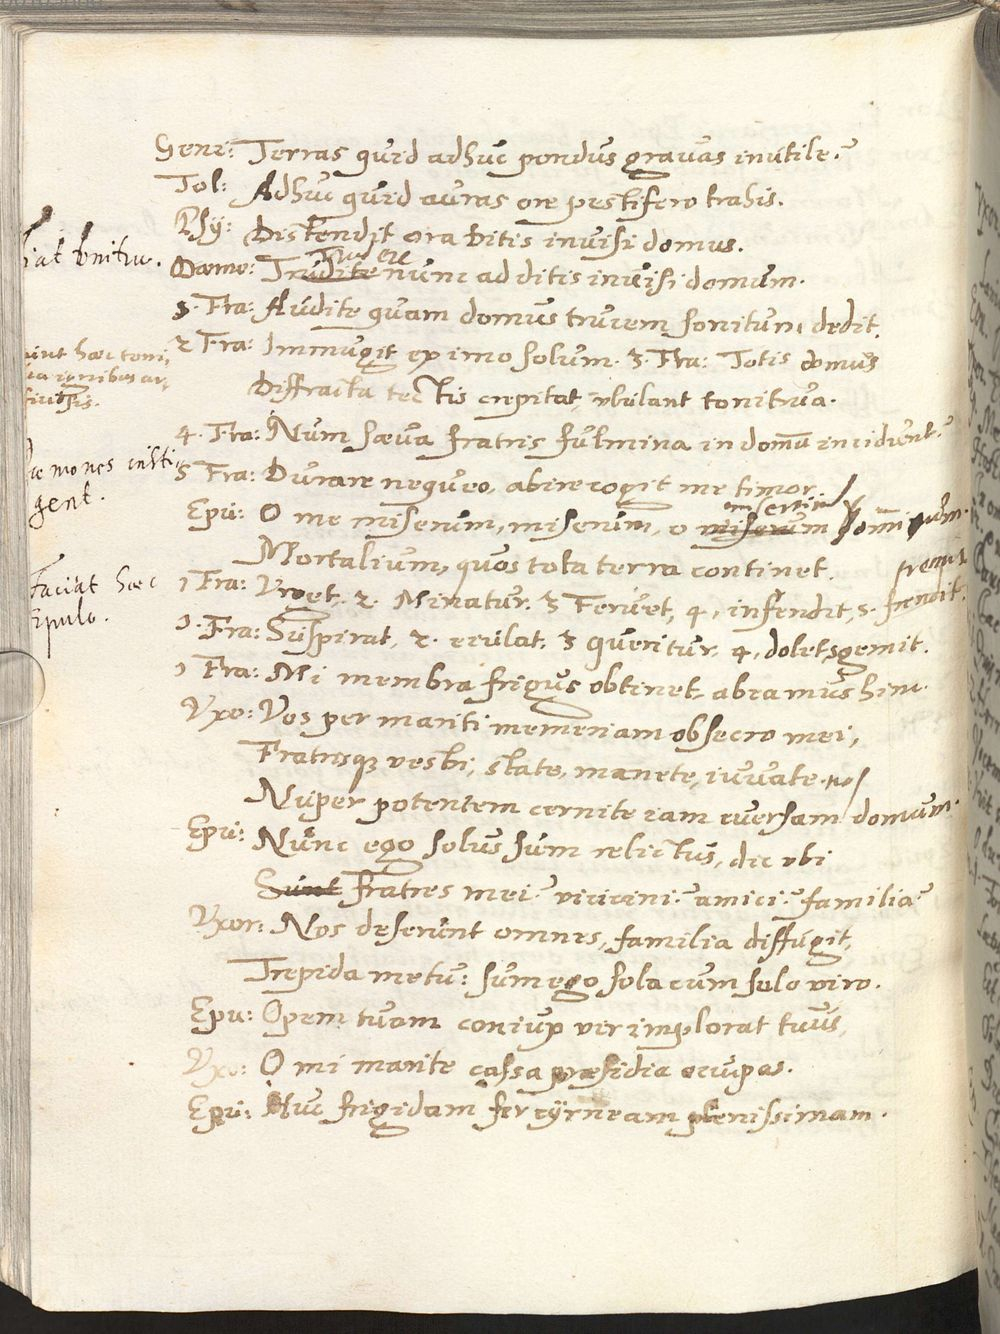 Geni: Terras quid adhuc pondus gravas inutile?
Tol: Adhuc quid auras ore pestifero trahis.
Psy: Distendit ora ditis invisi domus.
fiat tonitru.
Dæmo: Trudite nunc ad ditis invisi domum.
1. Fra: Audite quam domus trucem sonitum dedit.
2 Fra: Immugit ex imo solum. 3. Fra: Totis domus
Diffracta tectis crepitat, ululant tonitrua.
4. Fra: Num sæva fratris fulmina in domū incidunt?
Dæmones insti
gent.
5 Fra: Durare nequeo, abire cogit me timor
Epu: O me miserum, miserum, o miserum omniūm
Mortalium, quos tota terra continet.
Faciat hæc
Epulo.
fremit
1 Fra: Uret, 2. Minatur. 3 Fervet, 4, infendit, 5. frendit.
1. Fra: Suspirat, 2. eiulat. 3 queritur. 4, dolet, 5 gemit.
1 Fra: Mi membra frigus obtinet abeamus hinc.
Vxo: Vos per mariti memoriam obsecro mei,
Fratrisq3 vestri, state, manete, iuvate nos
Nuper potentem cernite iam eversam domum.
Epu: Nunc ego solus sum relictus, dic ubi
Sunt fratres mei? vicini? amici? familia?
Vxor: Nos deserunt omnes, familia diffugit,
Trepida metu: sum ego sola cum solo viro.
Epu: Opem tuam coniux vir implorat tuus,
Vxo: O mi marite cassa præsidia occupas.
Epu: Huc frigidam fer cyrneam plenissimam.